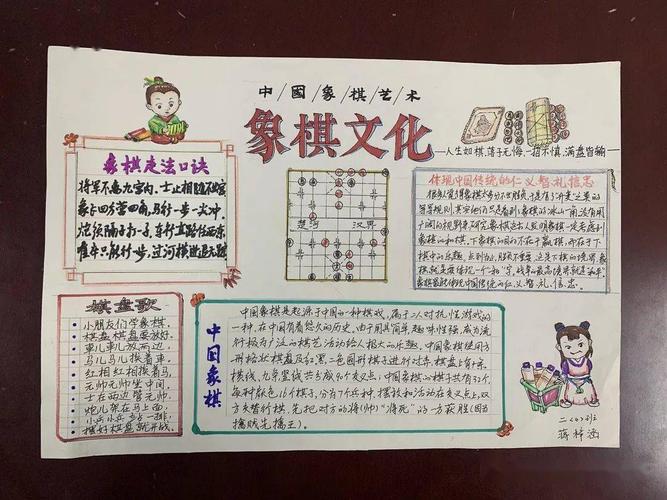 中国象棋艺术
象棋文化
人生如棋,落子无悔,一招不慎,满盘皆输
象棋走法口诀
将军不离九宫内,士止相随不出宫
象占四方营四角,马行一步一尖冲
炮须隔子打一子,车行直路任西东
唯卒只能行一步,过河横进退无踪
楚河 汉界
体现中国传统的仁义智礼信忠
棋盘歌
小朋友们学象棋,
棋盘棋盘要放好。
车儿车儿放两边,
马儿马儿挨着车,
红相红相挨着马,
元帅元帅坐中间,
士在两边管元帅,
炮儿架在马上面,
小兵小兵站一排,
摆好棋盘就开战。
中国象棋
中国象棋是起源于中国的一种棋戏,属于二人对抗性游戏的
一种,在中国有着悠久的历史。由于用具简单,趣味性强,成为流
行极为广泛的棋艺活动给人极大的乐趣。中国象棋使用方
形格状棋盘及红黑二色圆形棋子进行对弈,棋盘上有十条
横线、九条竖线共分成90个交叉点;中国象棋的棋子共有32个,
每种颜色16个棋子,分为7个兵种,摆放和活动在交叉点上,双
方交替行棋,先把对方的将(帅)“将死”的一方获胜(因为
擒贼先擒王)。
二(4)班
蒋梓涵